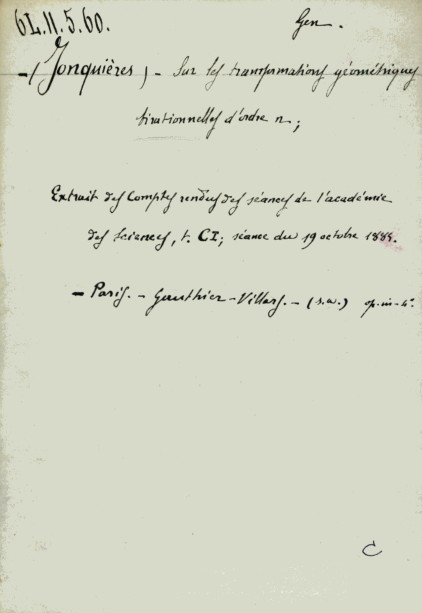 6L.11.5.60.
Gen.
-(Jonquières) - Sur les transformations géométriques
birationnelles d'ordre n;
Extrait des Comptes rendus des séances de l'académie
des sciences, t. CI; séance du 19 octobre 1885.
- Paris. - Gauthier-Villars. - (s.a.) op. in-4°.
C